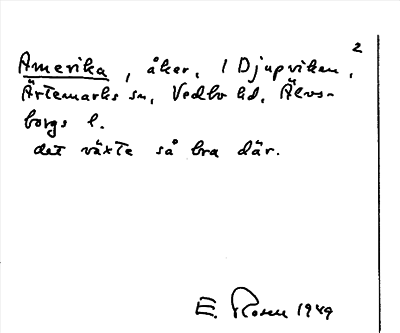 2
Amerika, åker, 1 Djupviken,
Ärtemarks sn, Vedbo hd, Älvs-
borgs l.
det växte så bra där.
E. Rosen 1949